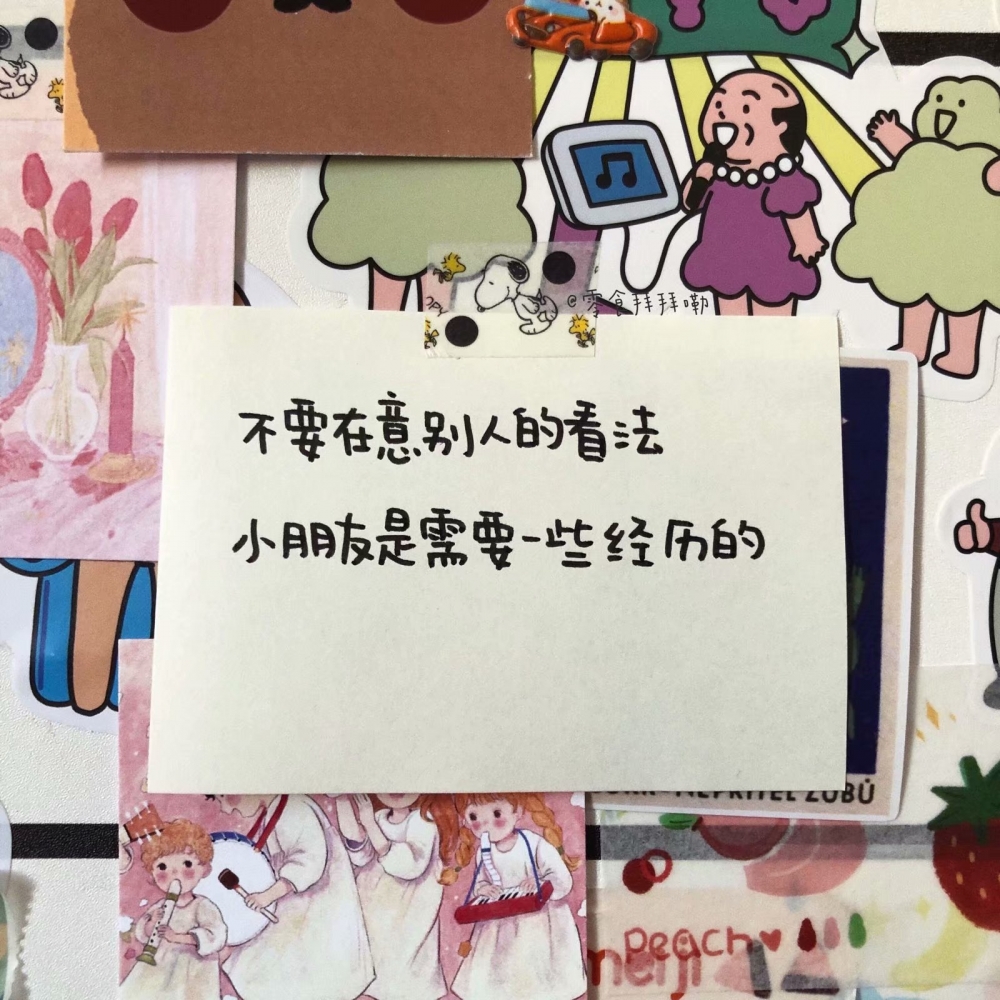 @零食拜拜嘞
不要在意别人的看法
小朋友是需要一些经历的
NEPŘÍTEL ZUBŮ
peach
meiji